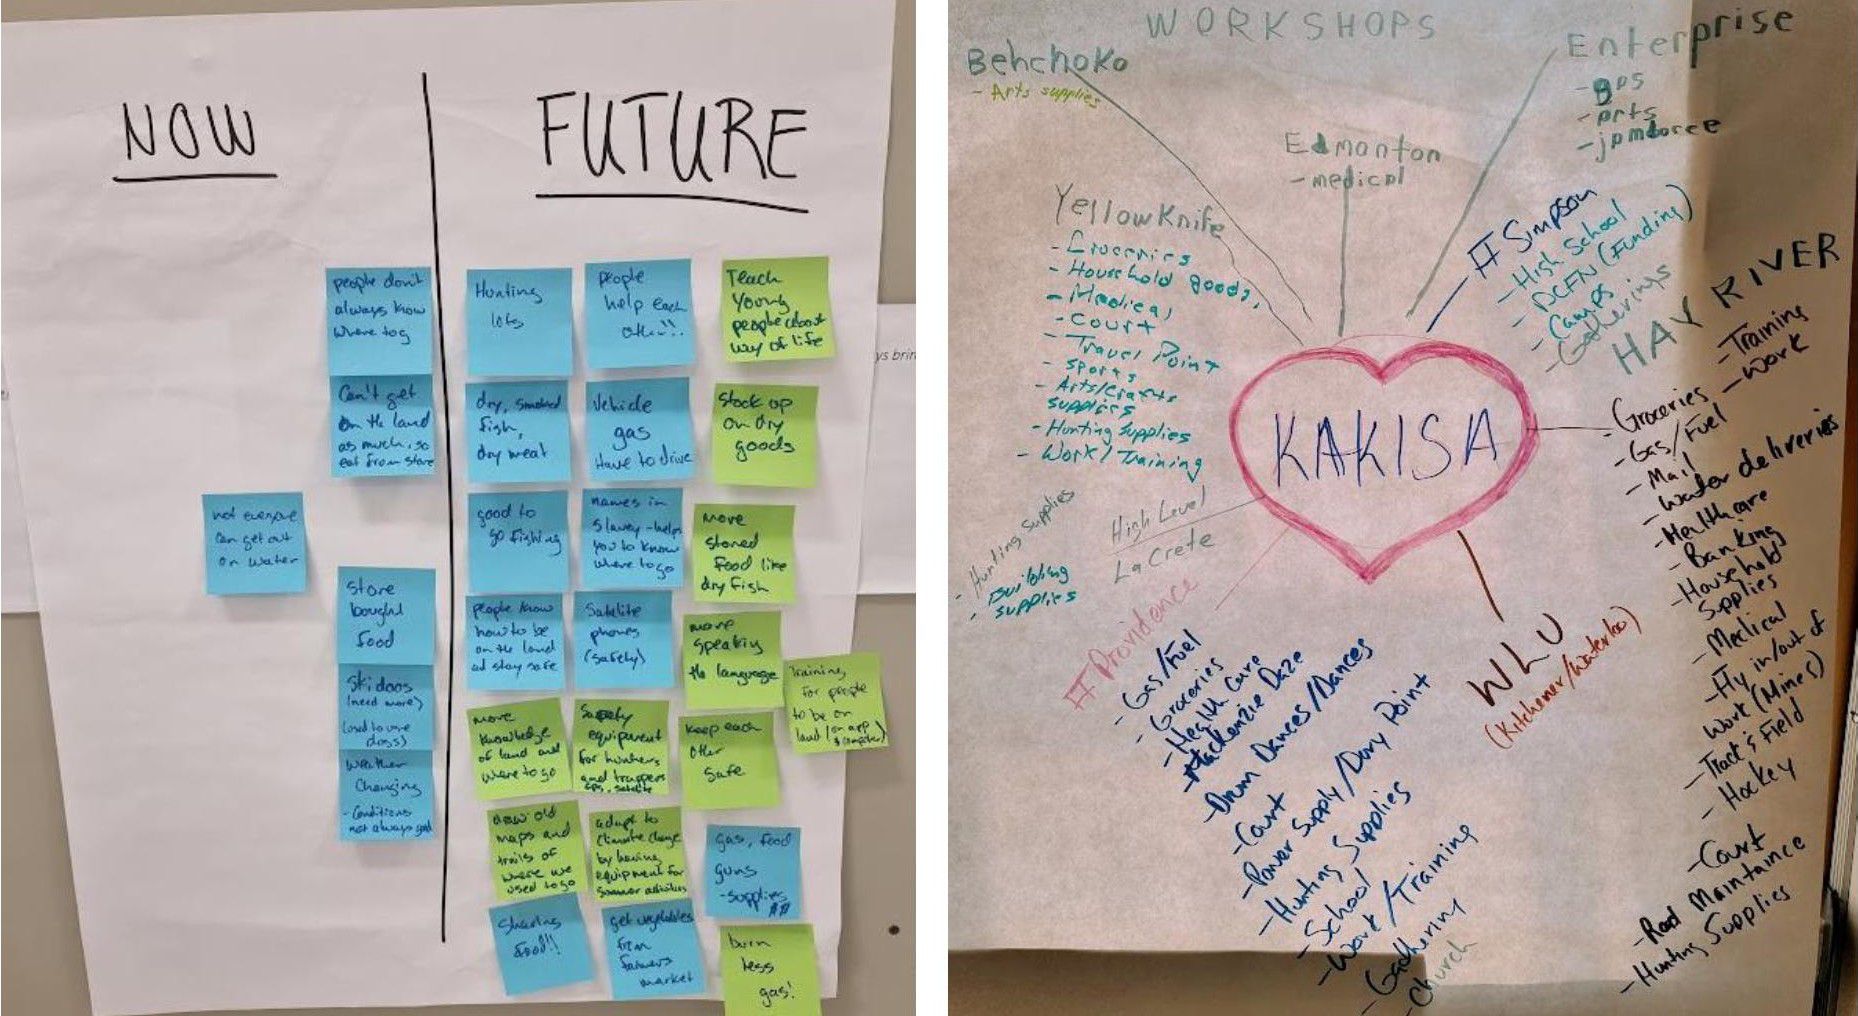 NOW
FUTURE
people don't
always know
where to g
Can't get
on the land
as much, so
eat from store
not everyone
can get out
on water
store
bought
food
skidoos
(need more)
(used to use
dogs)
weather
Changing
- Conditions
not always good
Hunting
lots
people
help each
other!!
Teach
young
people about
way of life
dry, smoked
fish,
dry meat
Vehicle
gas
Have to drive
Stock up
on dry
goods
good to
go fishing
names in
Slavey - helps
you to know
where to go
more
stored
food like
dry fish
people know
how to be
on the land
ad stay safe
Satelite
phones
(safety)
more
speaking
the language
Training
for people
to be on
land (on app
& computer)
more
knowledge
of land and
where to go
Safety
equipment
for hunters
and trappers
GPS, satelite
keep each
other
safe
draw old
maps and
trails of
where we
used to go
adapt to
climate change
by having
equipment for
summer activities
gas, food
guns
- supplies
$$
Sharing
food!!
get vegetables
from
farmers
market
burn
less
gas!
ys brin
WORKSHOPS
Behchoko
- Arts supplies
Edmonton
- medical
Enterprise
- gas
- arts
- jamboree
Yellowknife
- Groceries
- Household goods,
- Medical
- Court
- Travel Point
- sports
- Arts/Crafts
supplies
- Hunting Supplies
- Work / Training
Ft Simpson
- High School
- DCFN (Funding)
- Camps
- Gatherings
HAY RIVER
- Training
- Work
- Groceries
- Gas/Fuel
- Mail
- Water deliveries
- Healthcare
- Banking
- Household
Supplies
- Medical
- Fly in/out of
Work (Mines)
- Track & Field
- Hockey
- Court
- Road Maintance
- Hunting Supplies
KAKISA
High Level
La Crete
- Hunting Supplies
- Building
supplies
Ft Providence
- Gas/Fuel
- Groceries
- Health Care
- Mackenzie Daze
- Drum Dances/Dances
- Court
- Power Supply/Dory Point
- Hunting Supplies
- School
- Work/Training
- Gadhering
- Church
WLU
(Kitchener/Waterloo)